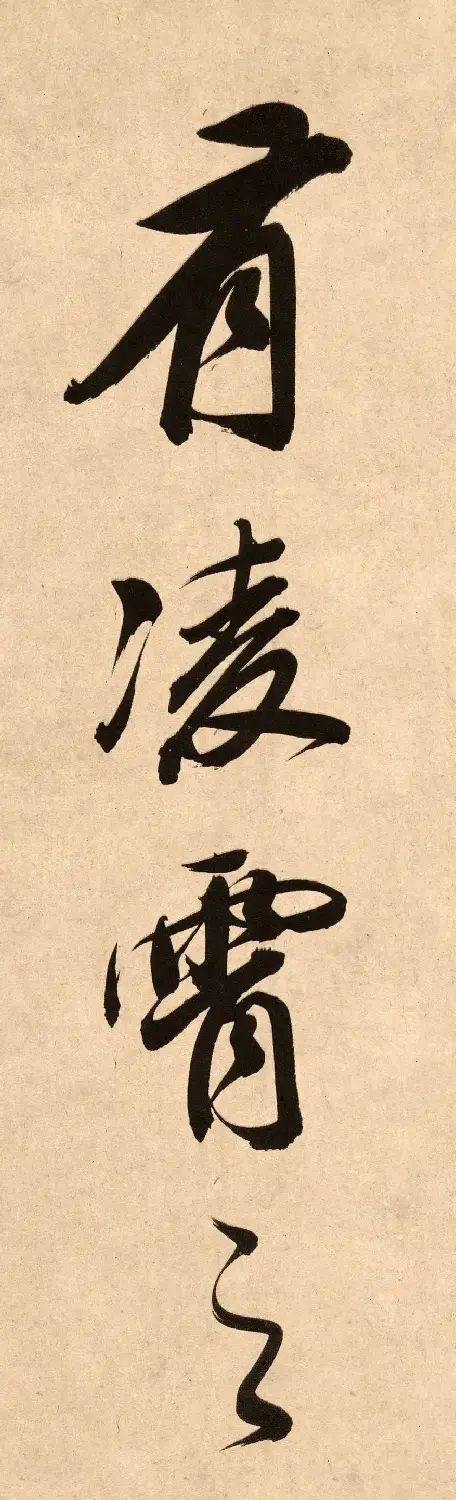 有凌霄之